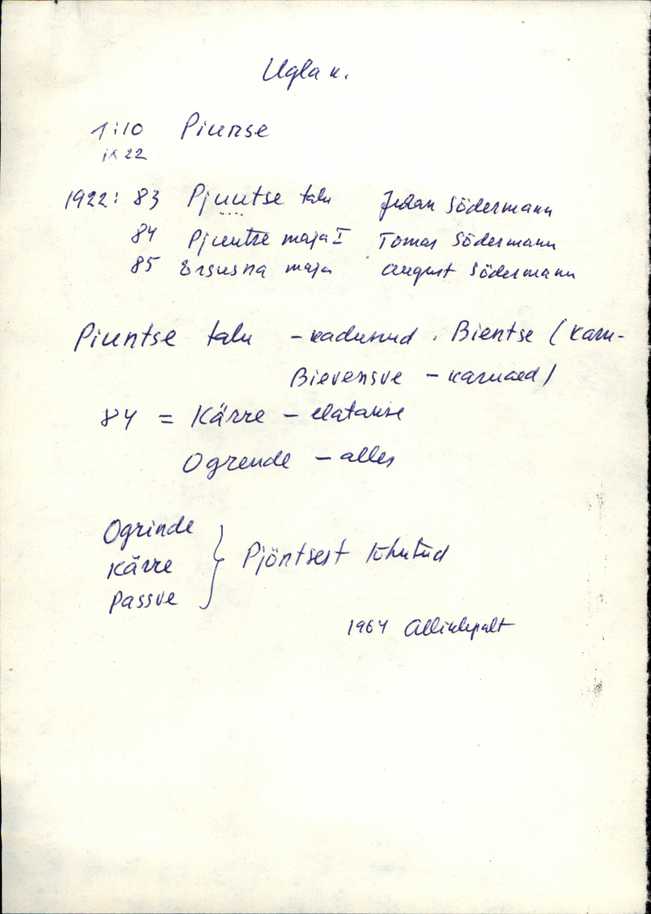 Ugla k.
1:10 Piunse
ix 22
1922: 83 Pjuutse talu Juhan Södermann
84 Pjuutse maja I Tomas Södermann
85 Ersusna maja August Södermann
Piuntse talu – kadunud. Bientse (karu-
Bievensve – karuaed)
84 = Kärre – elatakse
Ogrende – alles
Ogrinde
Kärre
Passve
} Pjöntsest lõhutud
1964 Allikalepalt